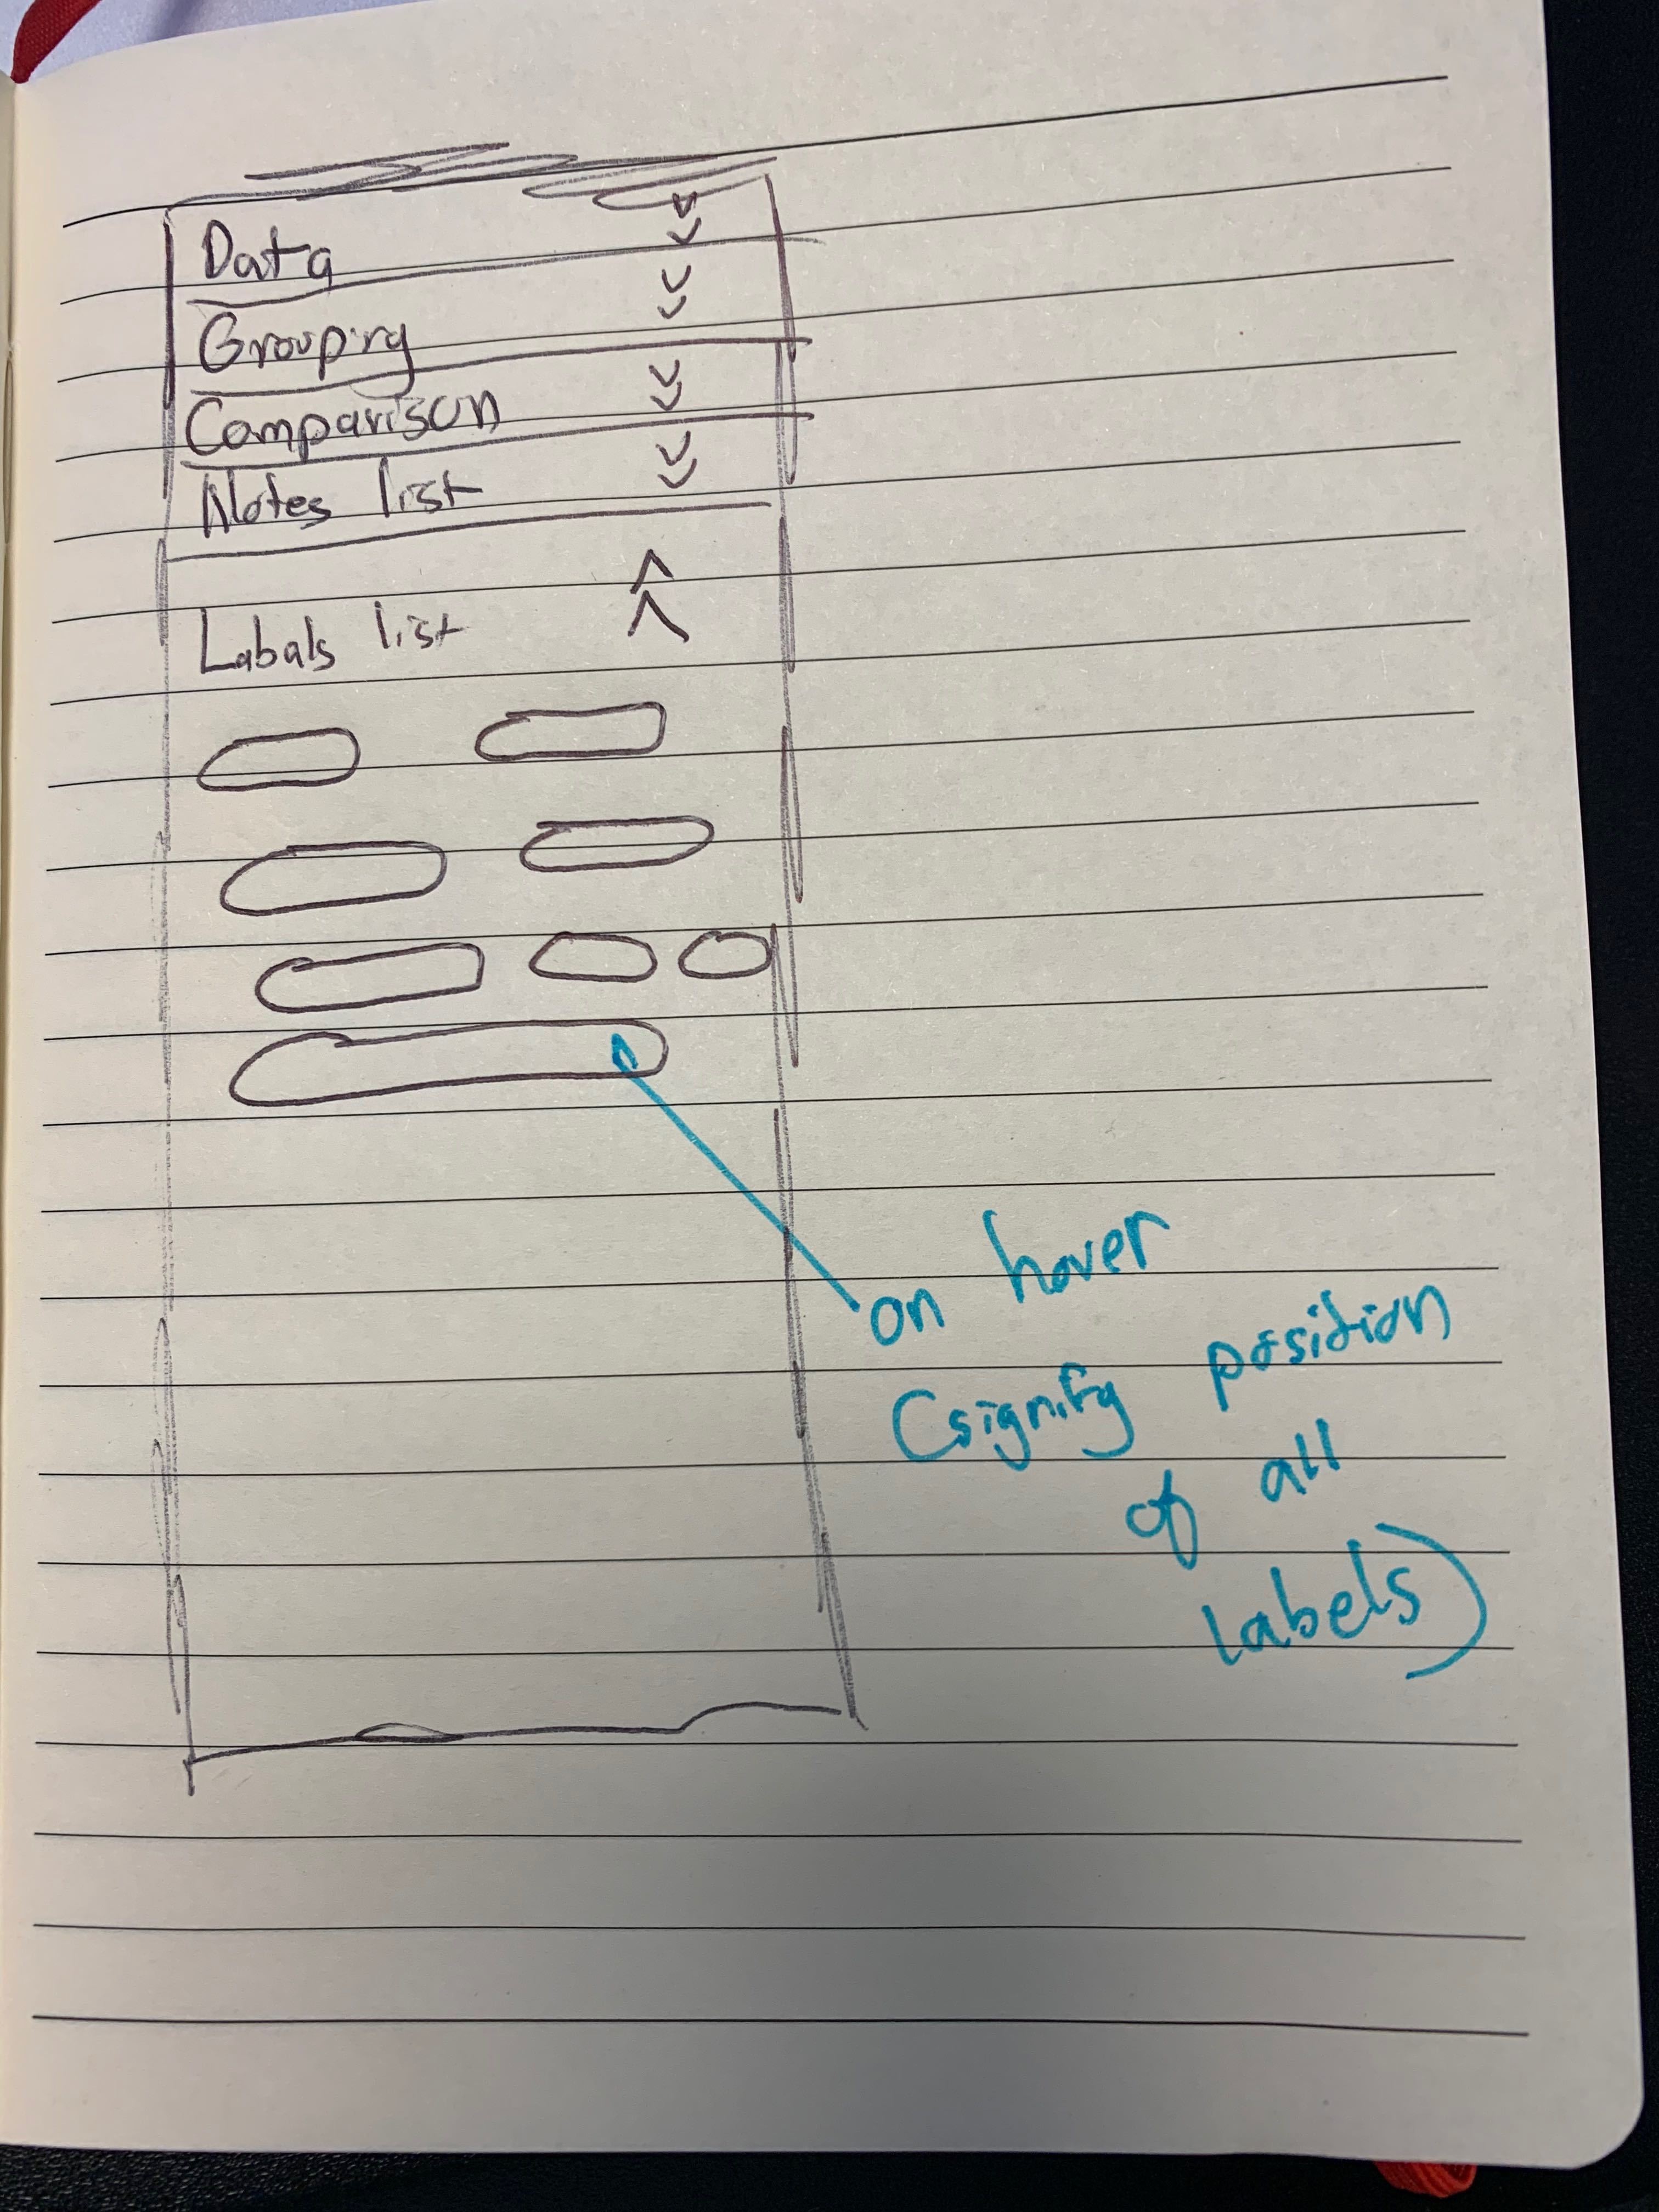 Data
Grouping
Comparison
Notes list
Labals list
on hover
(signify position
of all
labels)